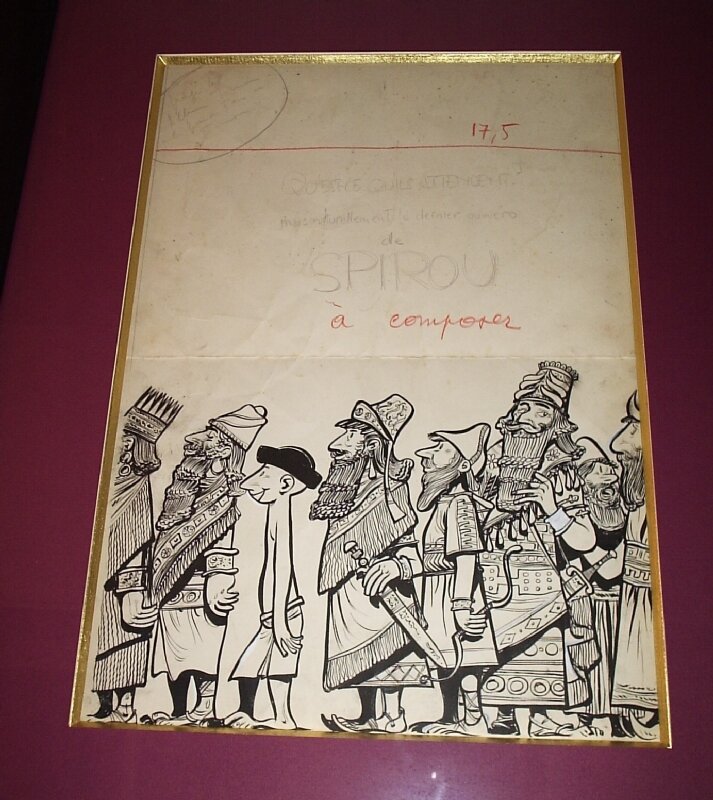 17,5
QU'EST-CE QU'ILS ATTENDENT.
mais naturellement le dernier numéro
de
SPIROU
à composer